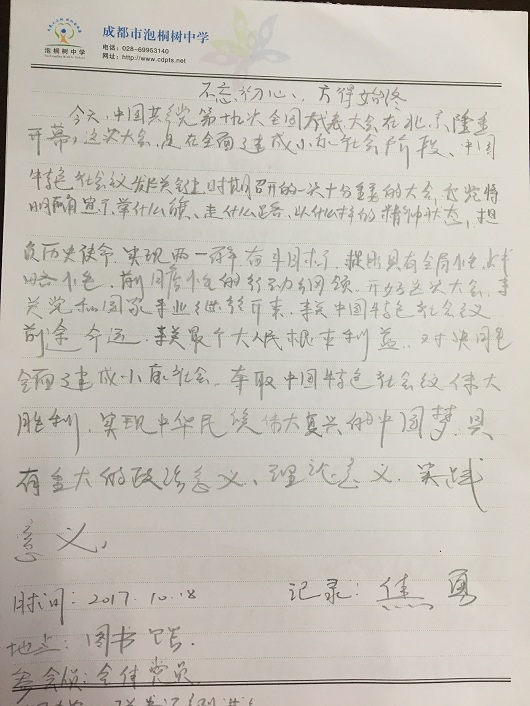 泡桐树中学
成都市泡桐树中学
电话：028-69953140
网址：http://www.cdpts.net
不忘初心、方得始终
今天,中国共产党第十九次全国代表大会在北京隆重
开幕,这次大会,是在全面建成小康社会阶段、中国
特色社会主义发展关键时期召开的一次十分重要的大会,
明确宣示举什么旗、走什么路、以什么样的精神状态,担
负历史使命、实现两一百年奋斗目标
开好这次大会,事
关党和国家事业继往开来、事关中国特色社会主义
前途命运、事关最广大人民根本利益、对决胜
全面建成小康社会、夺取中国特色社会主义伟大
胜利、实现中华民族伟大复兴的中国梦,具
有重大的政治意义、理论意义、实践
意义。
时间：2017.10.18 记录：焦勇
地点：图书馆
参会人员：全体党员